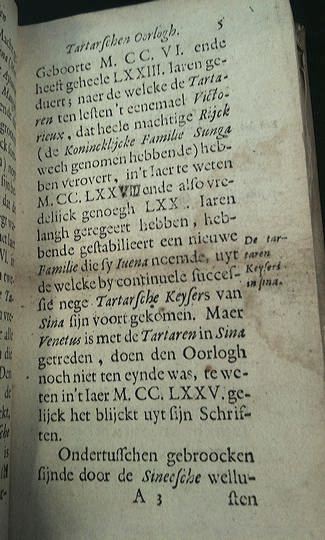 Tartarschen Oorlogh. 5
Geboorte M. CC. VI. ende
heeft geheele LXXIII. Iaren ge-
duert; naer de welcke de Tarta-
ren ten lesten 't eenemael Victo-
rieux, dat heele machtige Rijck
(de Konincklijcke Familie Sunga
wech genomen hebbende) heb-
ben verovert, in't Iaer te weten
M. CC. LXXVIII ende alsо vre-
delijck genoegh LXX. Iaren
langh geregeert hebben, heb-
bende gestabilieert een nieuwe
Familie die sy Iuena noemde, uyt
de welcke by continuele succes-
sie nege Tartarsche Keysers van
Sina sijn voort gekomen. Maer
Venetus is met de Tartaren in Sina
getreden, doen den Oorlogh
noch niet ten eynde was, te we-
ten in't Iaer M. CC. LXXV. ge-
lijck het blijckt uyt sijn Schrif-
ten.
De tar-
taren
Keysers
in sina.
Ondertusschen gebroocken
sijnde door de Sineesche wellu-
A 3 sten